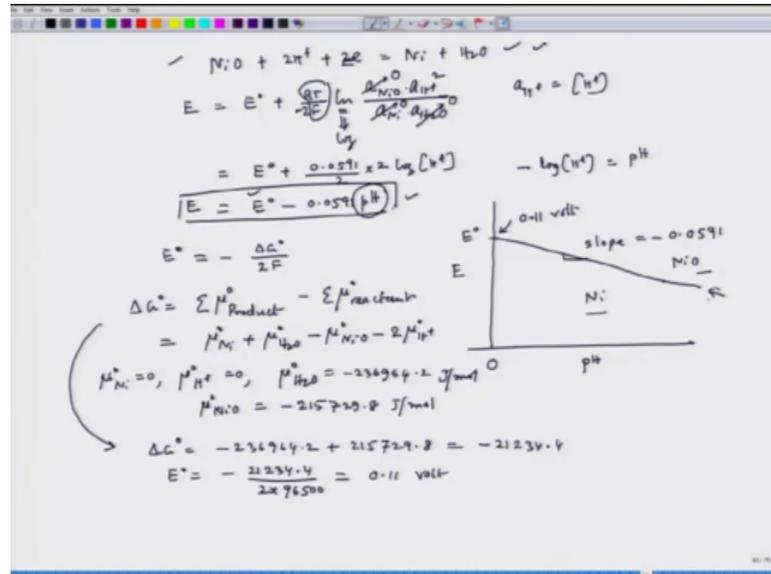 NiO + 2H⁺ + 2e = Ni + H₂O
E = E° + RT/2F ln a_NiO⁰ · a_H⁺² / a_Ni⁰ · a_H₂O⁰
log
a_H⁺ = [H⁺]
= E° + 0.0591/2 × 2 log [H⁺]
- log [H⁺] = pH
E = E° - 0.0591 pH
E° = - ΔG°/2F
ΔG° = Σμ°Product - Σμ°reactant
= μ°Ni + μ°H₂O - μ°NiO - 2μ°H⁺
μ°Ni = 0, μ°H⁺ = 0, μ°H₂O = -236964.2 J/mol
μ°NiO = -215729.8 J/mol
ΔG° = -236964.2 + 215729.8 = -21234.4
E° = - 21234.4 / 2×96500 = 0.11 volt
0.11 volt
E°
slope = -0.0591
E
NiO
Ni
0
pH